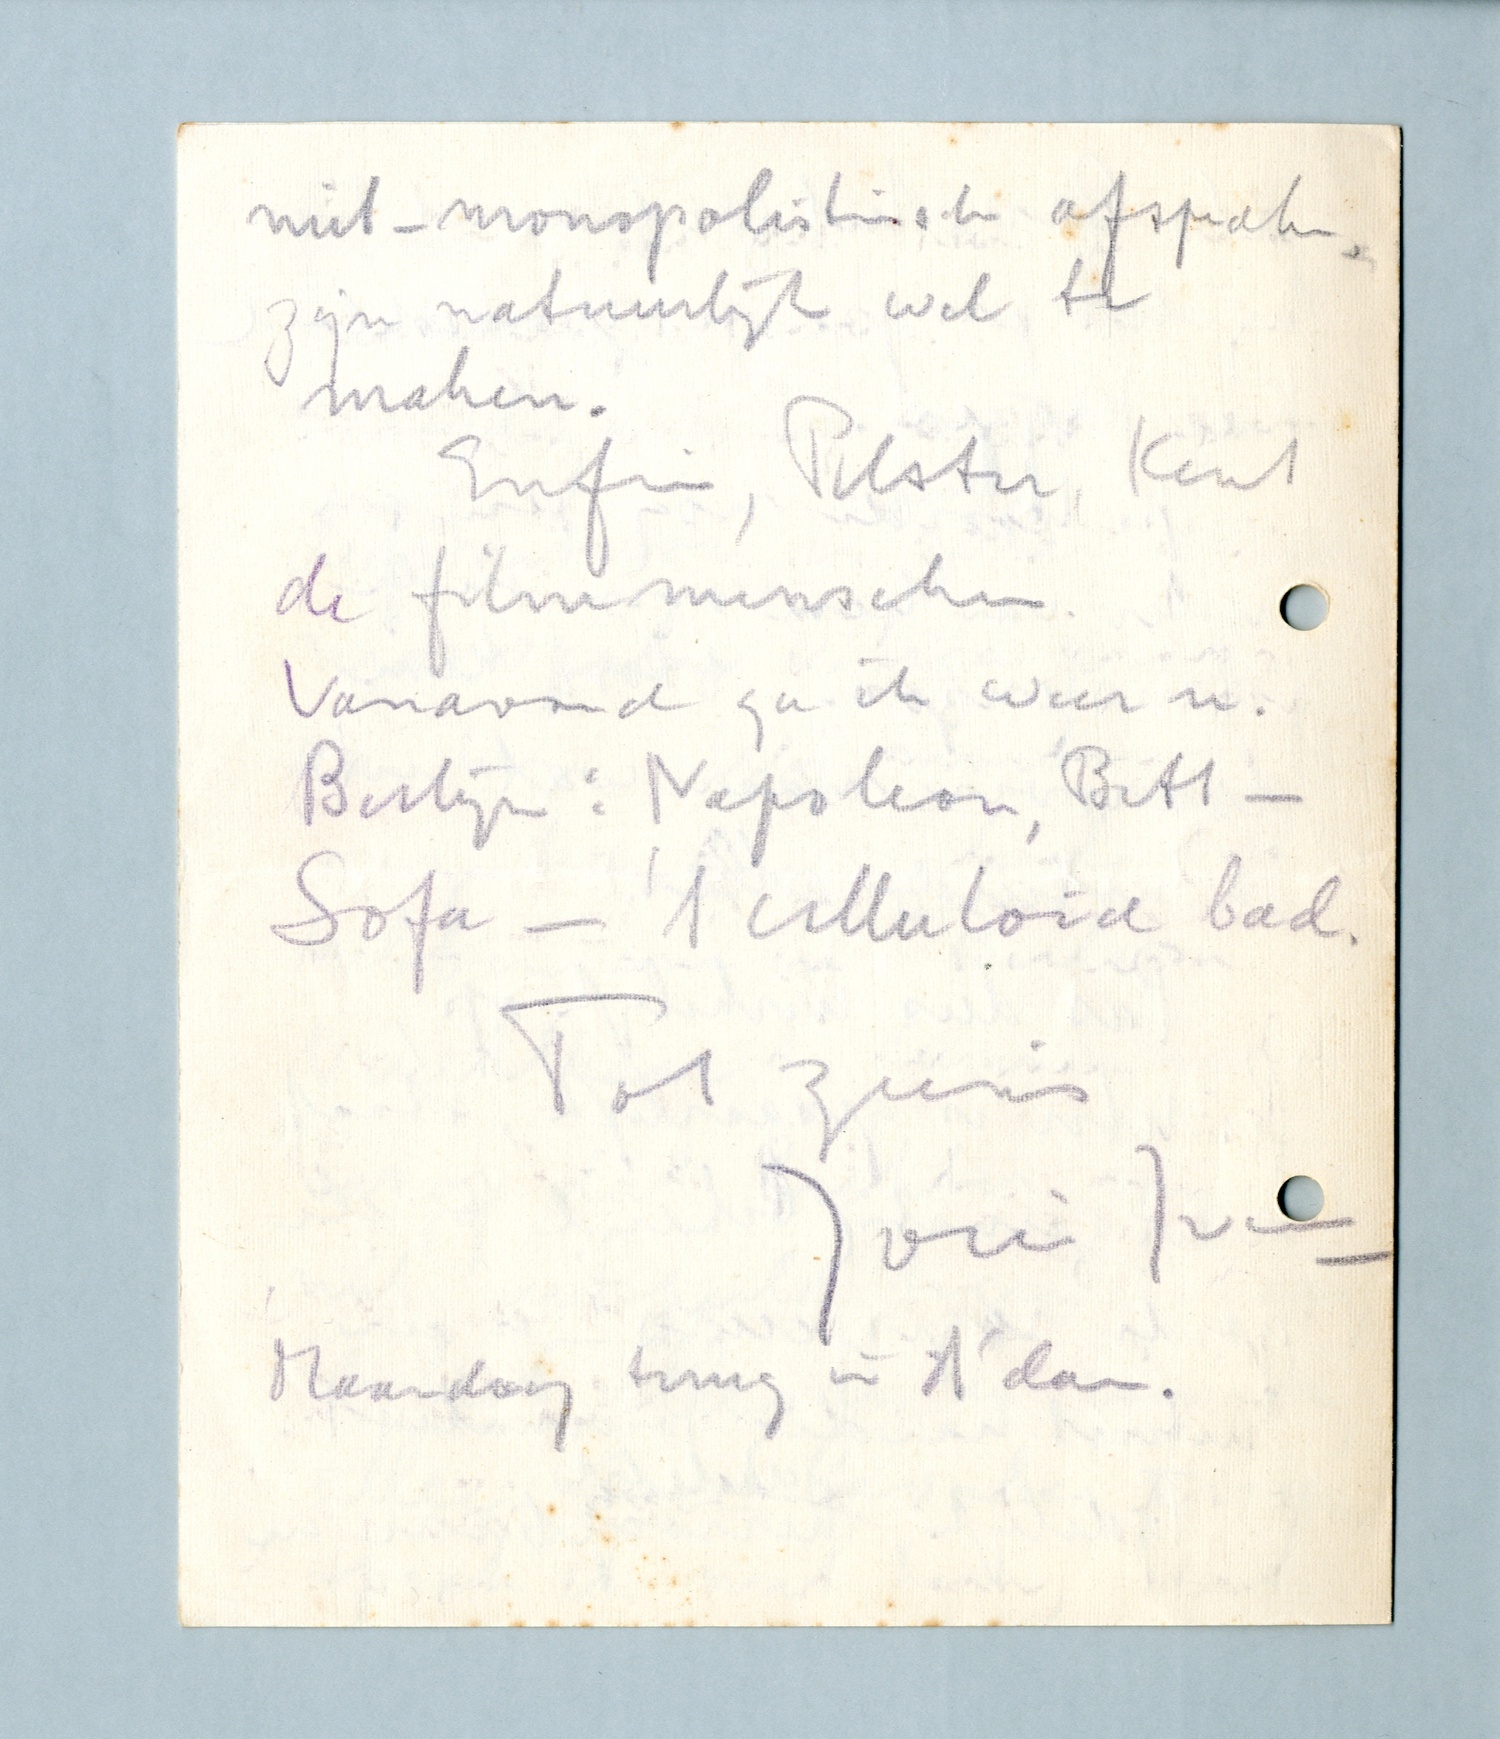 niet-monopolistische afspraken
zijn natuurlijk wel te
maken.
Enfin, Pelster, kent
de filmmenschen.
Vanavond ga ik weer n.
Berlijn: Napoleon, Bett-
Sofa - 't celluloid bad.
Tot ziens
Joris Ivens
Maandag terug in A'dam.